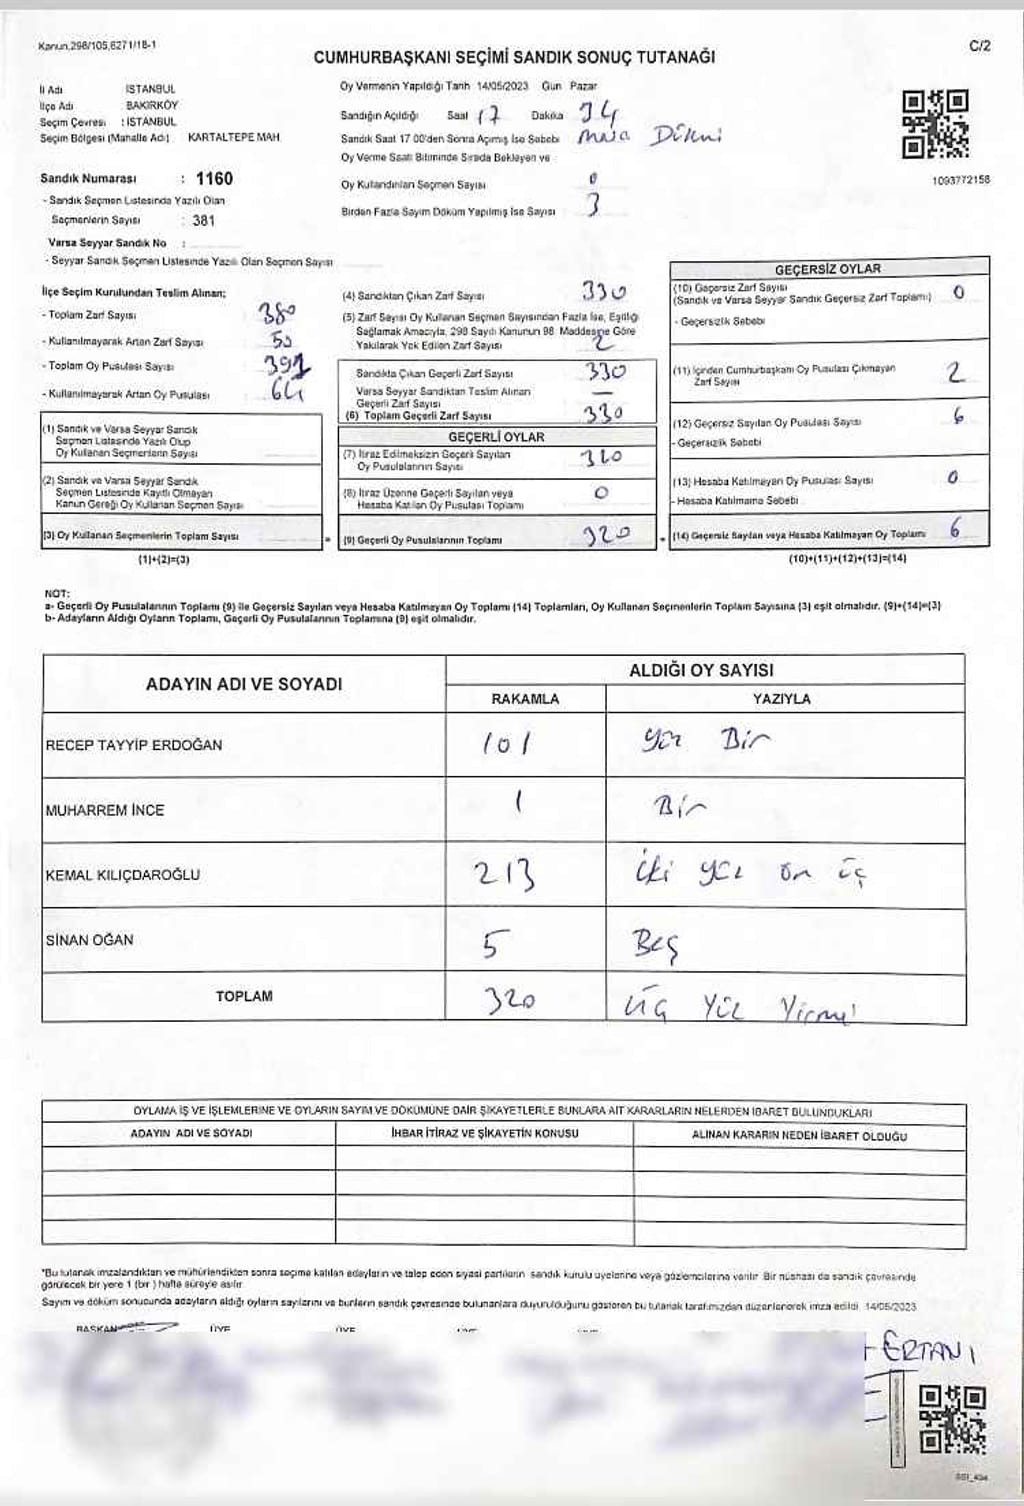 Kanun,298/105,6271/18-1
C/2
CUMHURBAŞKANI SEÇİMİ SANDIK SONUÇ TUTANAĞI
İl Adı İSTANBUL
İlçe Adı BAKIRKÖY
Seçim Çevresi : İSTANBUL
Seçim Bölgesi (Mahalle Adı) KARTALTEPE MAH
Sandık Numarası : 1160
- Sandık Seçmen Listesinde Yazılı Olan
Seçmenlerin Sayısı : 381
Varsa Seyyar Sandık No :
- Seyyar Sandık Seçmen Listesinde Yazılı Olan Seçmen Sayısı
Oy Vermenin Yapıldığı Tarih 14/05/2023 Gün Pazar
Sandığın Açıldığı Saat 17 Dakika 34
Sandık Saat 17 00'den Sonra Açımış İse Sebebi
Oy Verme Saati Bitiminde Sırada Bekleyen ve
Oy Kullandırılan Seçmen Sayısı 0
Birden Fazla Sayım Döküm Yapılmış İse Sayısı 3
1093772158
İlçe Seçim Kurulundan Teslim Alınan;
- Toplam Zarf Sayısı 380
- Kullanılmayarak Artan Zarf Sayısı 50
- Toplam Oy Pusulası Sayısı
- Kullanılmayarak Artan Oy Pusulası 64
(1) Sandık ve Varsa Seyyar Sandık
Seçmen Listesinde Yazılı Olup
Oy Kullanan Seçmenlerin Sayısı
(2) Sandık ve Varsa Seyyar Sandık
Seçmen Listesinde Kayıtlı Olmayan
Kanun Gereği Oy Kullanan Seçmen Sayısı
(3) Oy Kullanan Seçmenlerin Toplam Sayısı
(1)+(2)=(3)
(4) Sandıktan Çıkan Zarf Sayısı 330
(5) Zarf Sayısı Oy Kullanan Seçmen Sayısından Fazla İse, Eşitliği
Sağlamak Amacıyla, 298 Sayılı Kanunun 98. Maddesine Göre
Yakılarak Yok Edilen Zarf Sayısı 2
Sandıkta Çıkan Geçerli Zarf Sayısı 330
Varsa Seyyar Sandıktan Teslim Alınan
Geçerli Zarf Sayısı —
(6) Toplam Geçerli Zarf Sayısı 330
GEÇERLİ OYLAR
(7) İtiraz Edilmeksizin Geçerli Sayılan
Oy Pusulalarının Sayısı 320
(8) İtiraz Üzerine Geçerli Sayılan veya
Hesaba Katılan Oy Pusulası Toplamı 0
(9) Geçerli Oy Pusulalarının Toplamı 320
=
GEÇERSİZ OYLAR
(10) Geçersiz Zarf Sayısı 0
(Sandık ve Varsa Seyyar Sandık Geçersiz Zarf Toplamı)
- Geçersizlik Sebebi
(11) İçinden Cumhurbaşkanı Oy Pusulası Çıkmayan
Zarf Sayısı 2
(12) Geçersiz Sayılan Oy Pusulası Sayısı 6
- Geçersizlik Sebebi
(13) Hesaba Katılmayan Oy Pusulası Sayısı 0
- Hesaba Katılmama Sebebi
(14) Geçersiz Sayılan veya Hesaba Katılmayan Oy Toplamı 6
(10)+(11)+(12)+(13)=(14)
NOT:
a- Geçerli Oy Pusulalarının Toplamı (9) ile Geçersiz Sayılan veya Hesaba Katılmayan Oy Toplamı (14) Toplamları, Oy Kullanan Seçmenlerin Toplam Sayısına (3) eşit olmalıdır. (9)+(14)=(3)
b- Adayların Aldığı Oyların Toplamı, Geçerli Oy Pusulalarının Toplamına (9) eşit olmalıdır.
ADAYIN ADI VE SOYADI
ALDIĞI OY SAYISI
RAKAMLA YAZIYLA
RECEP TAYYİP ERDOĞAN 101 Yüz Bir
MUHARREM İNCE 1 Bir
KEMAL KILIÇDAROĞLU 213 İki yüz on üç
SİNAN OĞAN 5 Beş
TOPLAM 320 Üç Yüz Yirmi
OYLAMA İŞ VE İŞLEMLERİNE VE OYLARIN SAYIM VE DÖKÜMÜNE DAİR ŞİKAYETLERLE BUNLARA AİT KARARLARIN NELERDEN İBARET BULUNDUKLARI
ADAYIN ADI VE SOYADI İHBAR İTİRAZ VE ŞİKAYETİN KONUSU ALINAN KARARIN NEDEN İBARET OLDUĞU
*Bu tutanak imzalandıktan ve mühürlendikten sonra seçime katılan adayların ve talep eden siyasi partilerin sandık kurulu üyelerine veya gözlemcilerine verilir. Bir nüshası da sandık çevresinde
görülecek bir yere 1 (bir) hafta süreyle asılır.
Sayım ve döküm sonucunda adayların aldığı oyların sayılarını ve bunların sandık çevresinde bulunanlara duyurulduğunu gösteren bu tutanak tarafımızdan düzenlenerek imza edildi. 14/05/2023
BAŞKAN ÜYE ÜYE
ERTANI